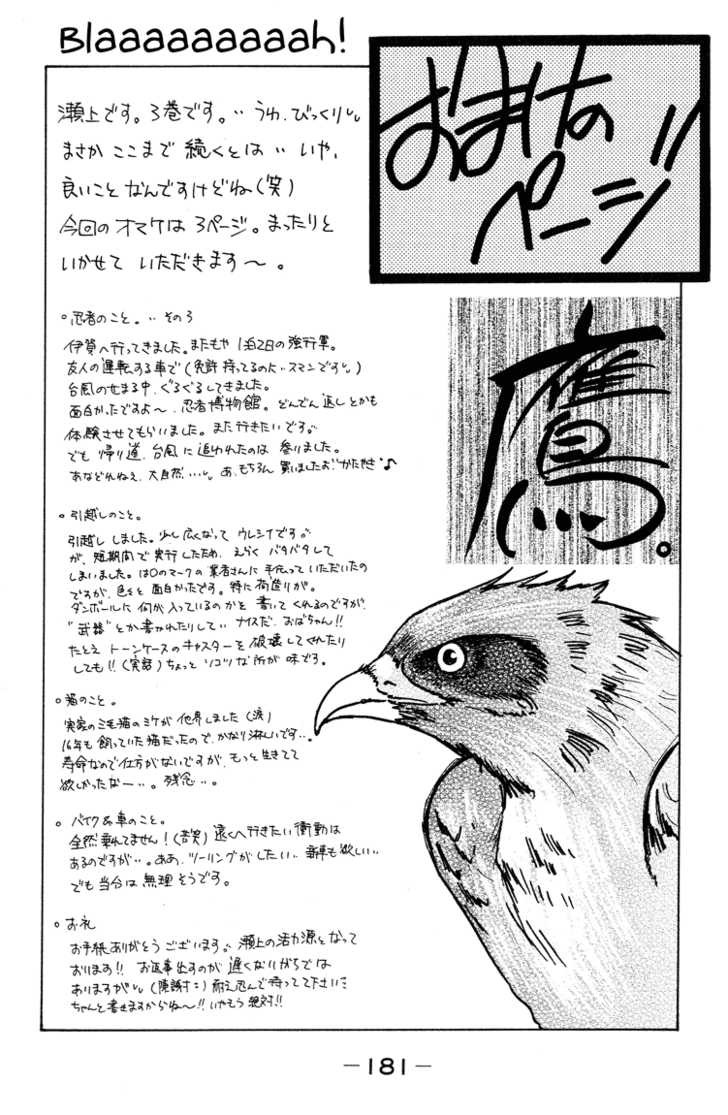 Blaaaaaaaaah!
おまけの
ページ!!
瀬上です。3巻です。‥うわ、びっくり
まさか ここまで 続くとは‥いや、
良いこと なんですけどね(笑)
今回の オマケは 3ページ。まったりと
いかせて いただきます〜。
鷹。
○忍者のこと。‥その3
伊賀へ行ってきました。またもや 1泊2日の強行軍。
友人の運転する車で(免許 持ってるのに‥スマンです)
台風の せまる中、ぐるぐるしてきました。
面白かったですよ〜、忍者博物館。どんでん返しとかも
体験させてもらいました。また行きたいです。
でも 帰り道、台風に 追われたのは 参りました。
あなどれねえ、大自然…。あ、もちろん 買いましたよ"かたやき"♪
○引越しのこと。
引越し しました。少し広くなって ウレシイです。
が、短期間で実行したため、えらく バタバタして
しまいました。は○のマークの 業者さんに 手伝って いただいたの
ですが、色々と 面白かったです。特に 荷造りが。
ダンボールに 何が入っているのかを 書いて くれるのですが、
"武器" とか書かれたりして‥ ナイスだ、おばちゃん!!
たとえ トーンケースのキャスターを 破壊してくれたり
しても!!(実話) ちょっと ソコツな所が 味です。
○猫のこと。
実家の三毛猫のミケが 他界しました(涙)
16年も 飼っていた猫だったので、かなり淋しいです‥。
寿命なので仕方がないですが、もっと生きてて
欲しかったなー‥。残念‥。
○バイク&車のこと。
全然 乗れてません!(苦笑) 遠くへ行きたい衝動は
あるのですが‥。ああ、ツーリングがしたい‥ 新車も欲しい‥
でも当分は 無理そうです。
○お礼
お手紙ありがとう ございます。瀬上の活力源と なって
おります!! お返事出すのが 遅くなりがちでは
ありますが (陳謝) 耐え忍んで待ってて下さい
ちゃんと書きますからね〜!! いやもう 絶対!!
－181－